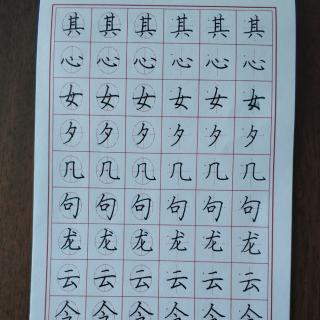 其 其 其 其 其 其
心 心 心 心 心 心
女 女 女 女 女 女
夕 夕 夕 夕 夕 夕
几 几 几 几 几 几
句 句 句 句 句 句
龙 龙 龙 龙 龙 龙
云 云 云 云 云 云
令 令 令 令 令 令